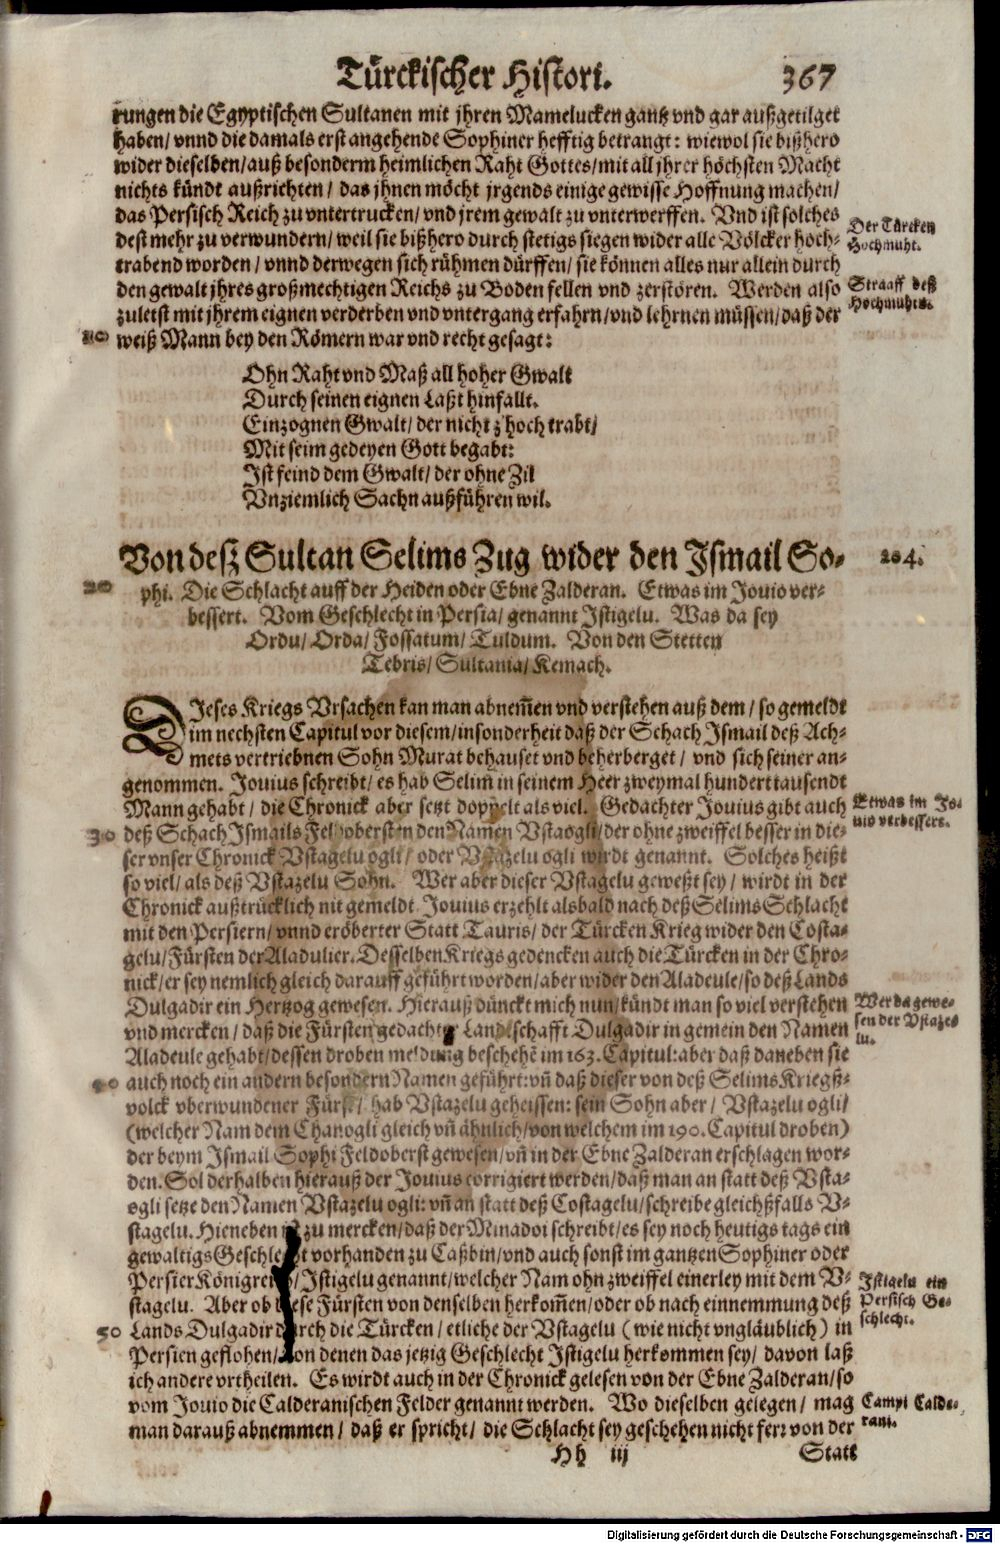 Türckischer Histori. 367
rungen die Egyptischen Sultanen mit jhren Mamelucken gantz vnd gar außgetilget
haben/ vnnd die damals erst angehende Sophiner hefftig betrangt: wiewol sie bißhero
wider dieselben/ auß besonderm heimlichen Raht Gottes/ mit all jhrer höchsten Macht
nichts kündt außrichten/ das jhnen möcht jrgends einige gewisse Hoffnung machen/
das Persisch Reich zu vntertrucken/ vnd jrem gewalt zu vnterwerffen. Vnd ist solches
dest mehr zu verwundern/ weil sie bißhero durch stetigs siegen wider alle Völcker hoch-
trabend worden/ vnnd derwegen sich rühmen dürffen/ sie können alles nur allein durch
den gewalt jhres großmechtigen Reichs zu Boden fellen vnd zerstören. Werden also
zuletst mit jhrem eignen verderben vnd vntergang erfahrn/ vnd lehrnen müssen/ daß der
weiß Mann bey den Römern war vnd recht gesagt:
Der Türcken
Hochmuht.
Straaff deß
Hochmuhts.
10
Ohn Raht vnd Maß all hoher Gwalt
Durch seinen eignen Laßt hinfallt.
Einzognen Gwalt/ der nicht z'hoch trabt/
Mit seim gedeyen Gott begabt:
Ist feind dem Gwalt/ der ohne Zil
Vnziemlich Sachn außführen wil.
Von desz Sultan Selims Zug wider den Ismail So- 204.
20 phi. Die Schlacht auff der Heiden oder Ebne Zalderan. Etwas im Jouio ver-
bessert. Vom Geschlecht in Persia/ genannt Istigelu. Was da sey
Ordu/ Orda/ Fossatum/ Tuldum. Von den Stetten
Tebris/ Sultania/ Kemach.
DJeses Kriegs Vrsachen kan man abnem̃en vnd verstehen auß dem/ so gemeldt
im nechsten Capitul vor diesem/ insonderheit daß der Schach Ismail deß Ach-
mets vertriebnen Sohn Murat behauset vnd beherberget/ vnd sich seiner an-
genommen. Jouius schreibt/ es hab Selim̃ in seinem Heer zweymal hundert tausendt
Mann gehabt/ die Chronick aber setzt doppelt als viel. Gedachter Jouius gibt auch
30 deß Schach Ismails Feldobersten den Namen Vstaogli/ der ohne zweiffel besser in die-
ser vnser Chronick Vstagelu ogli/ oder Vstazelu ogli wirdt genannt. Solches heißt
so viel/ als deß Vstazelu Sohn. Wer aber dieser Vstagelu geweßt sey/ wirdt in der
Chronick außtrücklich nit gemeldt. Jouius erzehlt alsbald nach deß Selims Schlacht
mit den Persiern/ vnnd eröberter Statt Tauris/ der Türcken Krieg wider den Costa-
gelu/ Fürsten der Aladulier. Desselben Kriegs gedencken auch die Türcken in der Chro-
nick/ er sey nemlich gleich darauff geführt worden/ aber wider den Aladeule/ so deß Lands
Dulgadir ein Hertzog gewesen. Hierauß dünckt mich nun/ kündt man so viel verstehen
vnd mercken/ daß die Fürsten gedachter Landtschafft Dulgadir in gemein den Namen
Aladeule gehabt/ dessen droben meldung beschehẽ im 163. Capitul: aber daß daneben sie
40 auch noch ein andern besondern Namen geführt: vñ daß dieser von deß Selims Kriegß-
volck vberwundener Fürst/ hab Vstazelu geheissen: sein Sohn aber/ Vstazelu ogli/
(welcher Nam dem Chanogli gleich vñ ähnlich/ von welchem im 190. Capitul droben)
der beym Ismail Sophi Feldoberst gewesen/ vñ in der Ebne Zalderan erschlagen wor-
den. Sol derhalben hierauß der Jouius corrigiert werden/ daß man an statt deß Vsta-
ogli setze den Namen Vstazelu ogli: vñ an statt deß Costagelu/ schreibe gleichßfalls V-
stagelu. Hieneben ist zu mercken/ daß der Minadoi schreibt/ es sey noch heutigs tags ein
gewaltigs Geschlecht vorhanden zu Caßbin/ vnd auch sonst im gantzen Sophiner oder
Persier Königreich/ Istigelu genannt/ welcher Nam ohn zweiffel einerley mit dem V-
stagelu. Aber ob diese Fürsten von denselben herkom̃en/ oder ob nach einnemmung deß
50 Lands Dulgadir durch die Türcken/ etliche der Vstagelu (wie nicht vngläublich) in
Persien geflohen/ von denen das jetzig Geschlecht Istigelu herkommen sey/ davon laß
ich andere vrtheilen. Es wirdt auch in der Chronick gelesen von der Ebne Zalderan/ so
vom Jouio die Calderanischen Felder genannt werden. Wo dieselben gelegen/ mag
man darauß abnemmen/ daß er spricht/ die Schlacht sey geschehen nicht ferr von der
Etwas im Jo-
uio verbessert.
Wer da gewe-
sen der Vstaze-
lu.
Istigelu ein
Persisch Ge-
schlecht.
Campi Calde-
rani.
Hh iij Statt
Digitalisierung gefördert durch die Deutsche Forschungsgemeinschaft - DFG